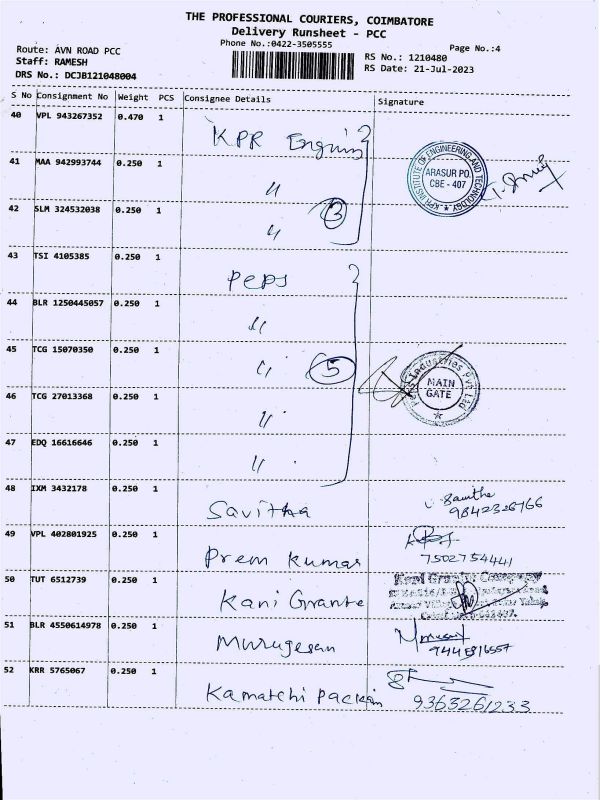 THE PROFESSIONAL COURIERS, COIMBATORE
Delivery Runsheet - PCC
Phone No.:0422-3505555
Page No.:4
Route: AVN ROAD PCC
Staff: RAMESH
DRS No.: DCJB121048004
RS No.: 1210480
RS Date: 21-Jul-2023
S No Consignment No Weight PCS Consignee Details Signature
40 VPL 943267352 0.470 1 KPR
41 MAA 942993744 0.250 1 〃
KPR INSTITUTE OF ENGINEERING AND TECHNOLOGY
ARASUR PO.
CBE - 407
42 SLM 324532038 0.250 1 〃
3
43 TSI 4105385 0.250 1 Peps
44 BLR 1250445057 0.250 1 〃
45 TCG 15070350 0.250 1 〃 5
Peps Industries Pvt Ltd
MAIN
GATE
46 TCG 27013368 0.250 1 〃
47 EDQ 16616646 0.250 1 〃
48 IXM 3432178 0.250 1 Savitha
49 VPL 402801925 0.250 1 Prem Kumar 7502754441
50 TUT 6512739 0.250 1 Kani Grante
Kani Granite Company
51 BLR 4550614978 0.250 1 Murugesan
52 KRR 5765067 0.250 1 Kamatchi 9363261233